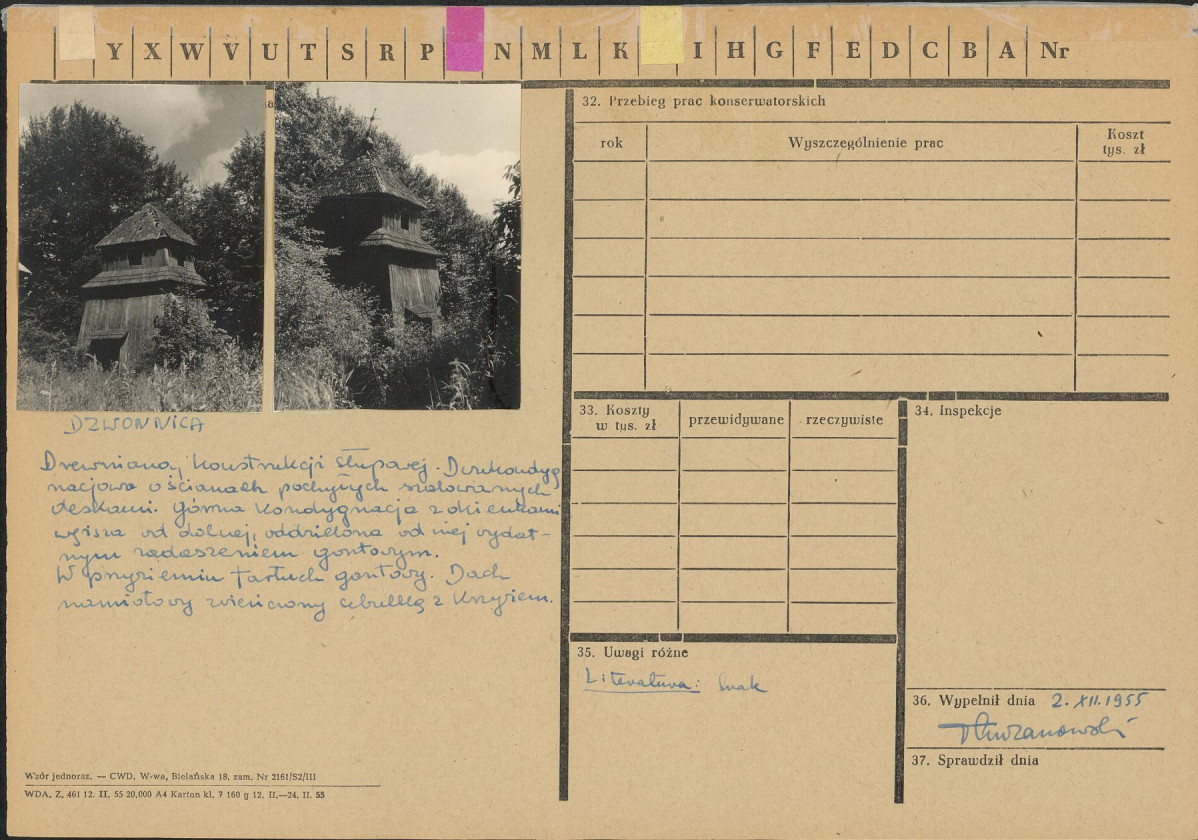 Y X W V U T S R P N M L K I H G F E D C B A Nr
8
DZWONNICA
Drewniana, konstrukcji słupowej. Dwukondyg
nacjowa o ścianach pochyłych szalowanych
deskami. Górna kondygnacja z okienkami
węższa od dolnej, oddzielona od niej wydat-
nym zadaszeniem gontowym.
W przyziemiu fartuch gontowy. Dach
namiotowy zwieńczony cebulką z krzyżem.
Wzór jednoraz. — CWD, W-wa, Bielańska 18, zam. Nr 2161/S2/III
WDA. Z. 461 12. II. 55 20,000 A4 Karton kl. 7 160 g 12. II.—24. II. 55
32. Przebieg prac konserwatorskich
rok Wyszczególnienie prac Koszt
tys. zł
33. Koszty
w tys. zł
przewidywane rzeczywiste
34. Inspekcje
35. Uwagi różne
Literatura: brak
36. Wypełnił dnia 2. XII. 1955
37. Sprawdził dnia